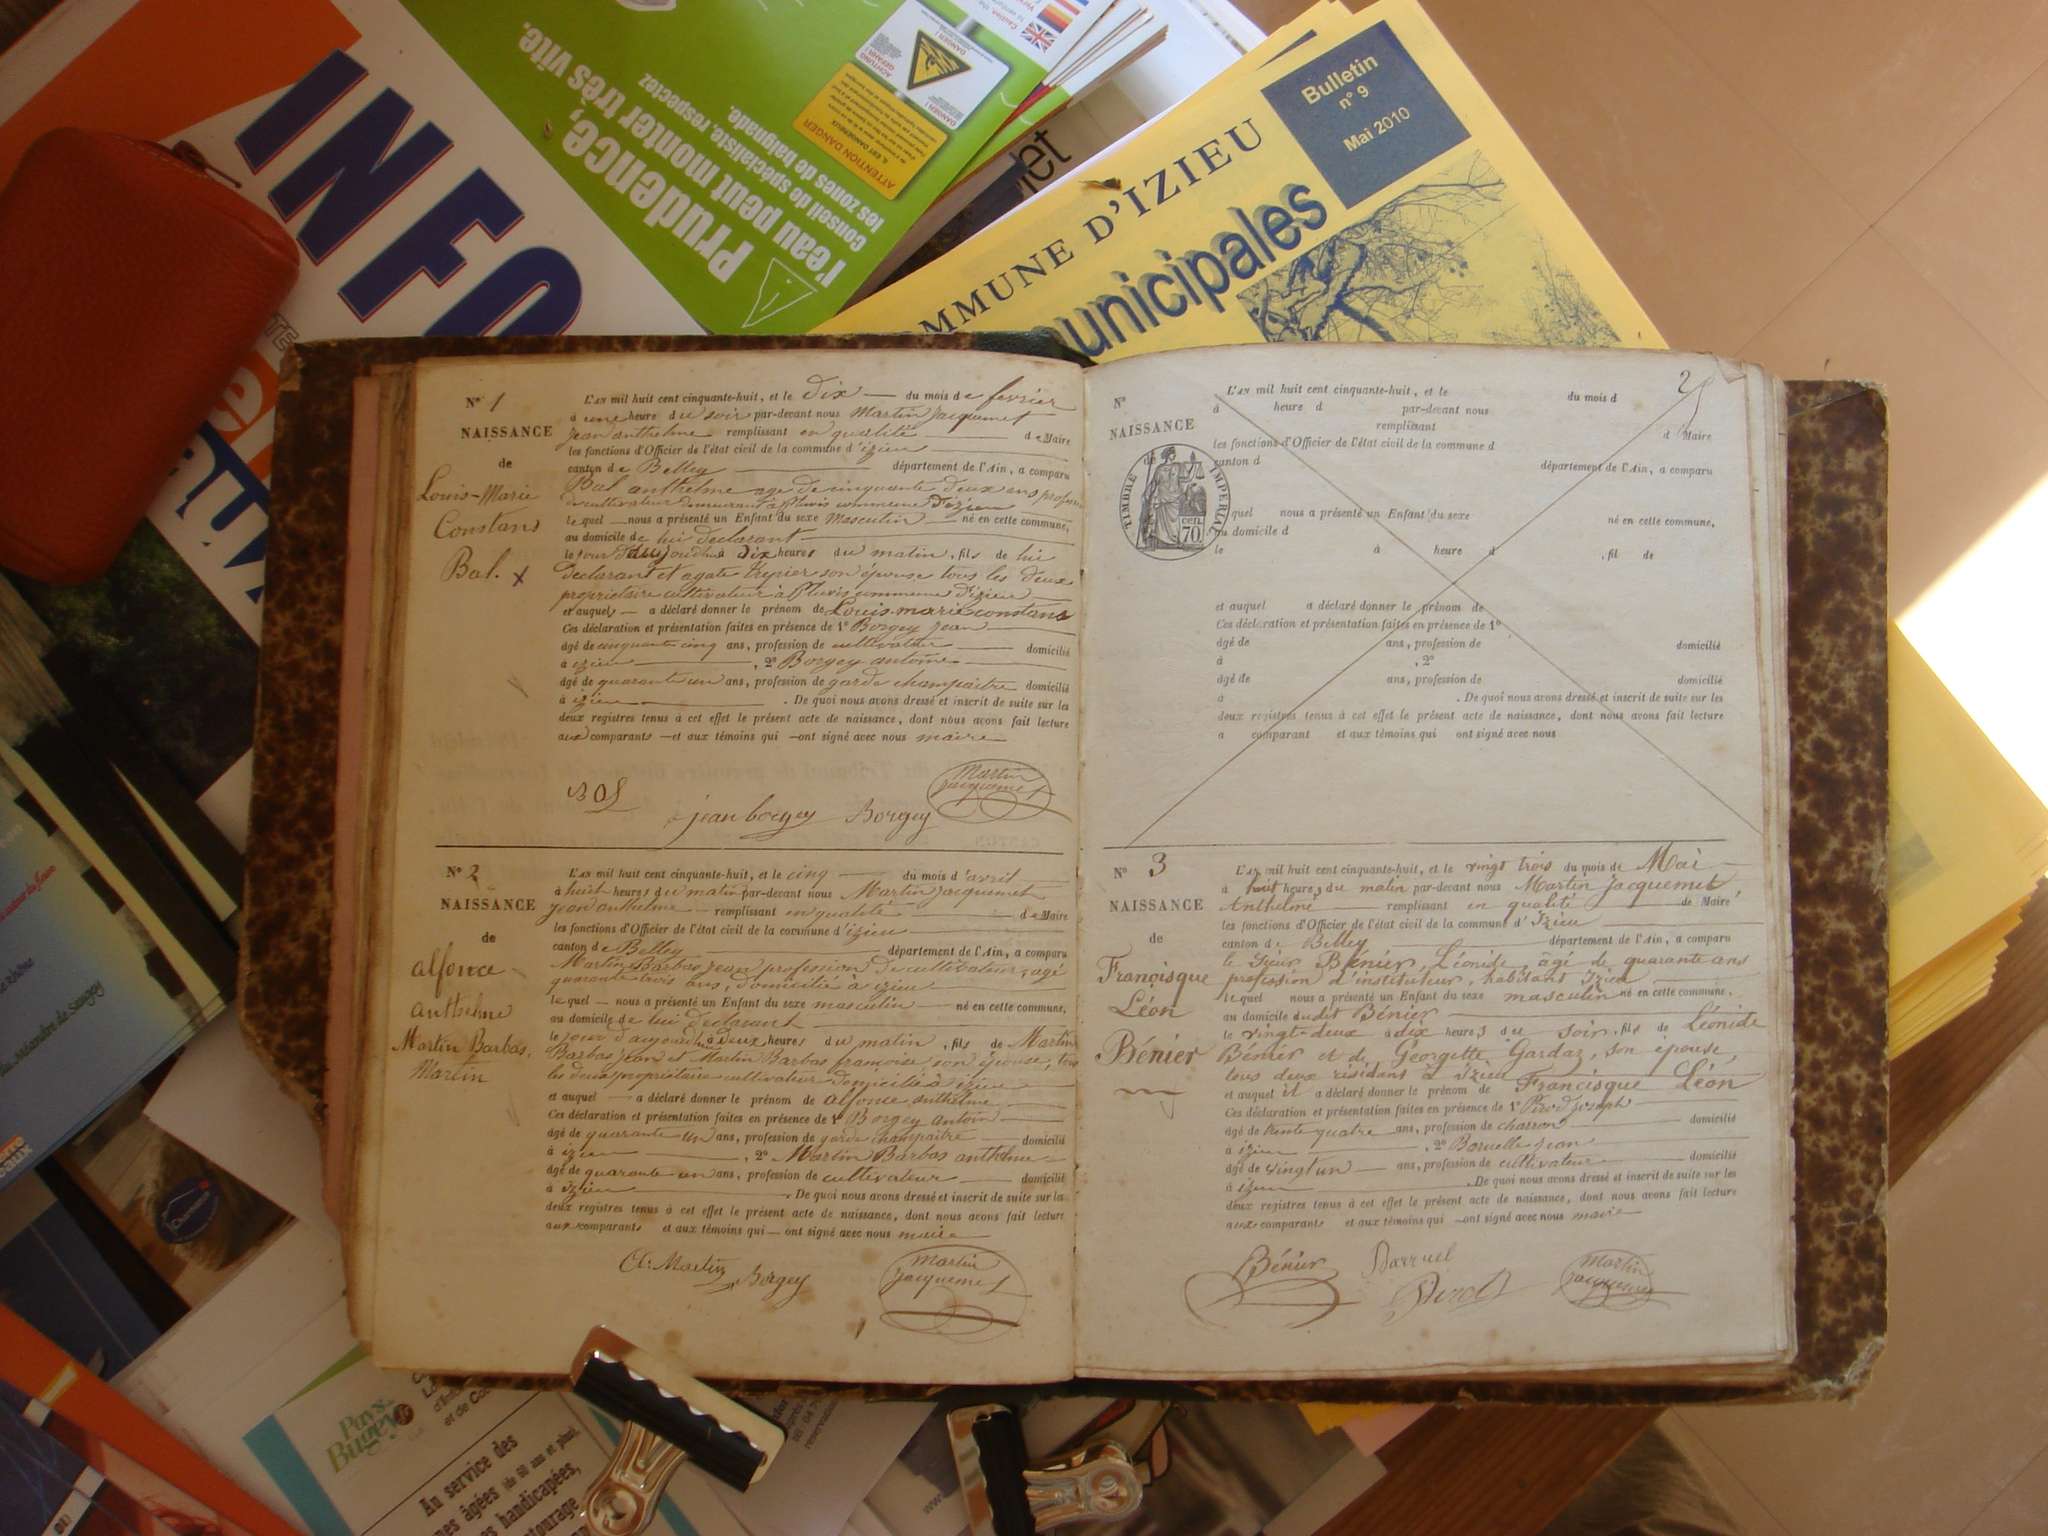 INFO
Prudence,
l'eau peut monter très vite.
conseil de spécialiste, respectez
les zones de baignade.
ATTENTION DANGER
COMMUNE D'IZIEU
unicipales
Bulletin
n° 9
Mai 2010
N° 1
NAISSANCE
de
Louis-Marie
Constans
Bal. x
L'AN mil huit cent cinquante-huit, et le dix — du mois de fevrier
à une heure du soir par-devant nous Martin Jacquemet
Jean anthelme remplissant en qualité — de Maire
les fonctions d'Officier de l'état civil de la commune d'izieu
canton de Belley — département de l'Ain, a comparu
Bal anthelme age de cinquante deux ans profession
de cultivateur demeurant à Pluvis commune d'izieu
le quel — nous a présenté un Enfant du sexe Masculin — né en cette commune,
au domicile de lui declarant
le jour d'aujourdhui à dix heures du matin, fils de lui
declarant et agate trepier son épouse tous les deux
propriétaire cultivateur à Pluvis commune d'izieu
et auquel — a déclaré donner le prénom de Louis-marie constans
Ces déclaration et présentation faites en présence de 1° Borgey Jean
âgé de cinquante cinq ans, profession de cultivateur — domicilié
à izieu — , 2° Borgey antoine
âgé de quarante un ans, profession de garde champaitre domicilié
à izieu — . De quoi nous avons dressé et inscrit de suite sur les
deux registres tenus à cet effet le présent acte de naissance, dont nous avons fait lecture
aux comparants — et aux témoins qui — ont signé avec nous maire
Bal
jean borgey Borgey
Martin
jacquemet
N° 2
NAISSANCE
de
alfonce
anthelme
Martin Barbas,
Martin
L'AN mil huit cent cinquante-huit, et le cinq — du mois d'avril
à huit heures du matin par-devant nous Martin Jacquemet
Jean anthelme — remplissant en qualité — de Maire
les fonctions d'Officier de l'état civil de la commune d'izieu
canton de Belley — département de l'Ain, a comparu
Martin Barbas Jean profession de cultivateur, agé
quarante trois ans, domicilié à izieu
le quel — nous a présenté un Enfant du sexe masculin — né en cette commune,
au domicile de lui declarant
le jour d'aujourdhui à deux heures du matin, fils de Martin
Barbas jean et Martin Barbas francoise, son épouse, tous
les deux propriétaire cultivateur domicilié à izieu
et auquel — a déclaré donner le prénom de alfonce anthelme
Ces déclaration et présentation faites en présence de 1° Borgey antoin
âgé de quarante un ans, profession de garde champaitre — domicilié
à izieu — , 2° Martin Barbas anthelme
âgé de quarante un ans, profession de cultivateur — domicilié
à izieu — . De quoi nous avons dressé et inscrit de suite sur les
deux registres tenus à cet effet le présent acte de naissance, dont nous avons fait lecture
aux comparants et aux témoins qui — ont signé avec nous maire
A. Martin Borgey
Martin
jacquemet
2
N°
NAISSANCE
de
TIMBRE IMPERIAL
70. CEN.
L'AN mil huit cent cinquante-huit, et le du mois d
à heure d par-devant nous
remplissant d Maire
les fonctions d'Officier de l'état civil de la commune d
canton d département de l'Ain, a comparu
quel nous a présenté un Enfant du sexe né en cette commune,
au domicile d
le à heure d , fil de
et auquel a déclaré donner le prénom de
Ces déclaration et présentation faites en présence de 1°
âgé de ans, profession de domicilié
à , 2°
âgé de ans, profession de domicilié
à . De quoi nous avons dressé et inscrit de suite sur les
deux registres tenus à cet effet le présent acte de naissance, dont nous avons fait lecture
a comparant et aux témoins qui ont signé avec nous
N° 3
NAISSANCE
de
Francisque
Léon
Bénier
L'AN mil huit cent cinquante-huit, et le vingt trois du mois de Mai
à huit heures du matin par-devant nous Martin Jacquemet,
Anthelme — remplissant en qualité — de Maire
les fonctions d'Officier de l'état civil de la commune d'Izieu
canton de Belley — département de l'Ain, a comparu
le sieur Bénier, Léonide, âgé de quarante ans
profession d'instituteur, habitant Izieu
le quel nous a présenté un Enfant du sexe masculin né en cette commune,
au domicile dudit Bénier
le vingt-deux à dix heures du soir, fils de Léonide
Bénier et de Georgette Gardaz, son épouse,
tous deux résidans à Izieu
et auquel il a déclaré donner le prénom de Francisque Léon
Ces déclaration et présentation faites en présence de 1° Pirod joseph
âgé de trente quatre ans, profession de charron — domicilié
à izieu — , 2° Jean
âgé de vingt un — ans, profession de cultivateur — domicilié
à izieu — . De quoi nous avons dressé et inscrit de suite sur les
deux registres tenus à cet effet le présent acte de naissance, dont nous avons fait lecture
aux comparants et aux témoins qui — ont signé avec nous maire
Bénier Barruel
Pirod
Martin
jacquemet
Pays
Bugey
Au service des
âgées (de 60 ans et plus),
handicapées,